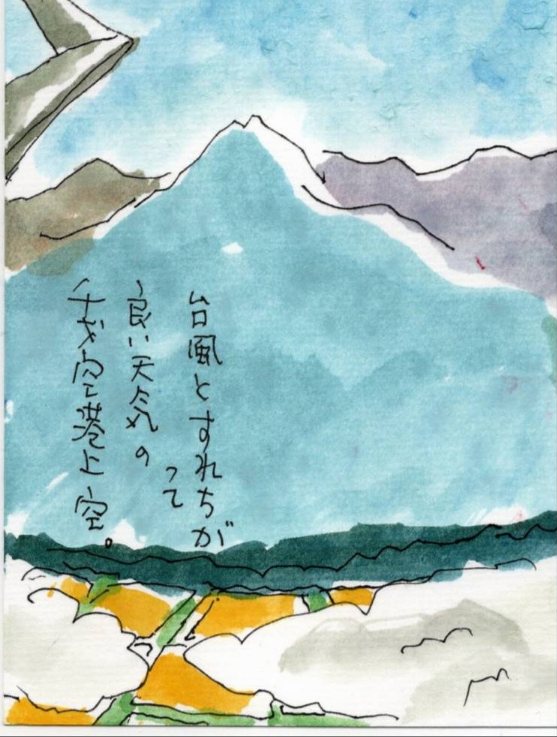 台風とすれちが
って
良い天気の
千才空港上空。